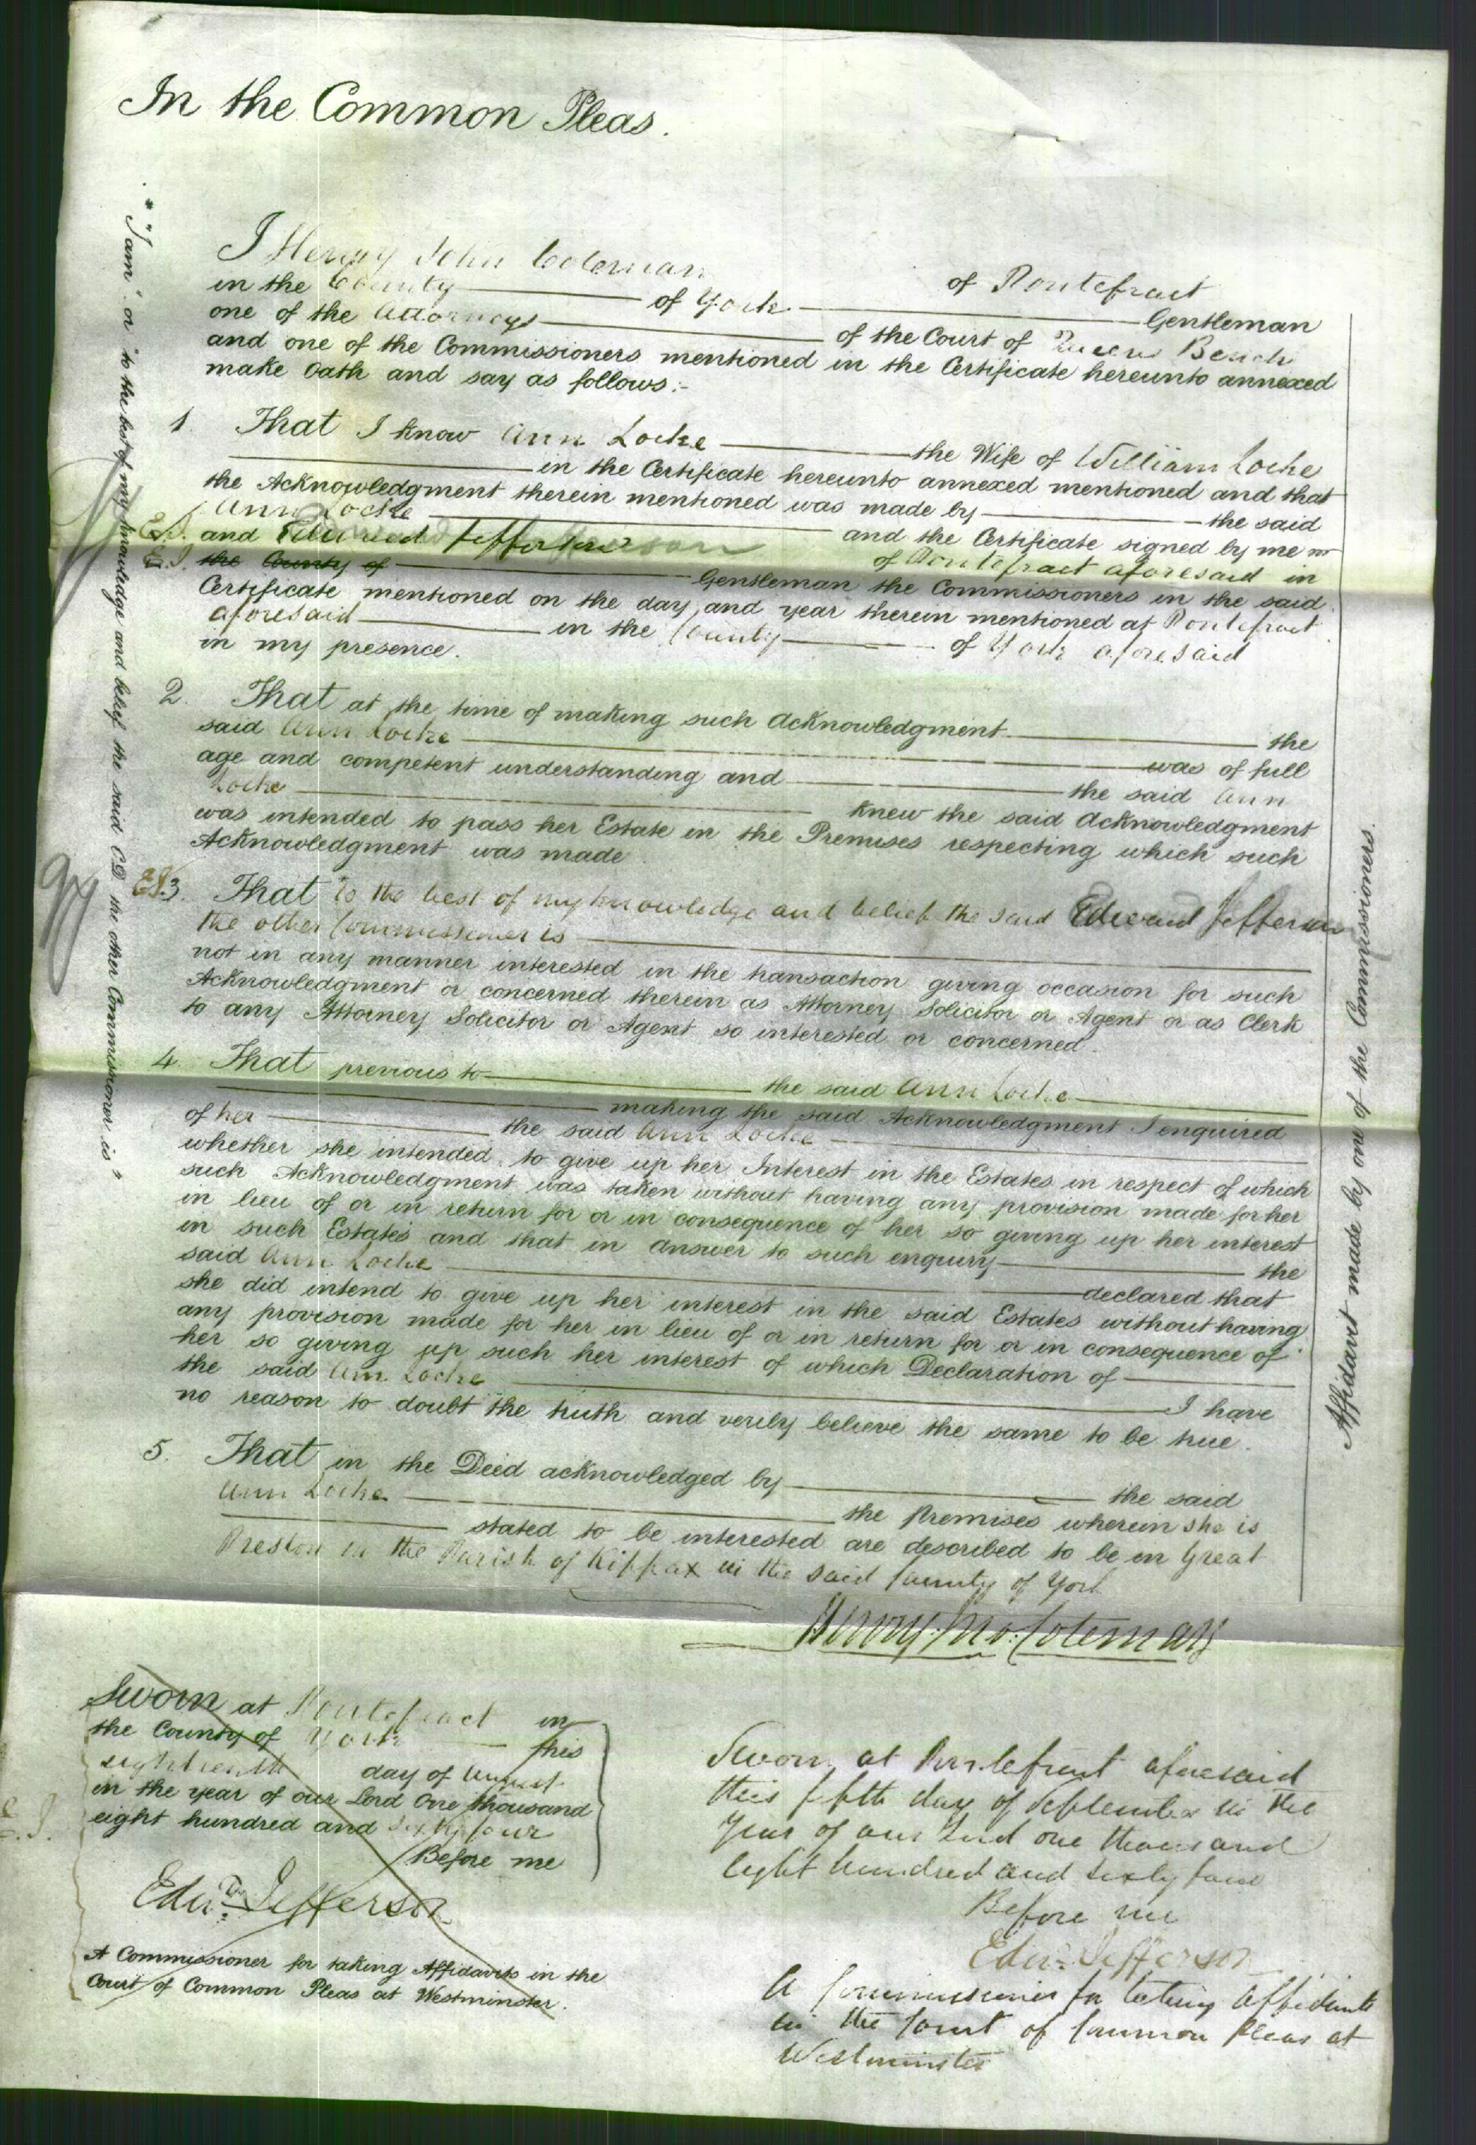 In the Common Pleas.
I Henry John Coleman of Pontefract
in the County of York Gentleman
one of the Attorneys of the Court of Queens Bench
and one of the Commissioners mentioned in the Certificate hereunto annexed
make Oath and say as follows:-
1. That I know Ann Locke the Wife of William Locke
in the Certificate hereunto annexed mentioned and that
the Acknowledgment therein mentioned was made by the said
Ann Locke and the Certificate signed by me
E.J. and Edward Jefferson of Pontefract aforesaid in
E.J. the County of Gentleman the Commissioners in the said
Certificate mentioned on the day and year therein mentioned at Pontefract
aforesaid in the County of York aforesaid
in my presence.
2. That at the time of making such Acknowledgment the
said Ann Locke was of full
age and competent understanding and the said Ann
Locke knew the said Acknowledgment
was intended to pass her Estate in the Premises respecting which such
Acknowledgment was made
E.J. 3. That to the best of my knowledge and belief the said Edward Jefferson
the other Commissioner is
not in any manner interested in the transaction giving occasion for such
Acknowledgment or concerned therein as Attorney Solicitor or Agent or as Clerk
to any Attorney Solicitor or Agent so interested or concerned.
4. That previous to the said Ann Locke
making the said Acknowledgment I enquired
of her the said Ann Locke
whether she intended to give up her Interest in the Estates in respect of which
such Acknowledgment was taken without having any provision made for her
in lieu of or in return for or in consequence of her so giving up her interest
in such Estates and that in answer to such enquiry the
said Ann Locke declared that
she did intend to give up her interest in the said Estates without having
any provision made for her in lieu of or in return for or in consequence of
her so giving up such her interest of which Declaration of
the said Ann Locke I have
no reason to doubt the truth and verily believe the same to be true.
5. That in the Deed acknowledged by the said
Ann Locke the Premises wherein she is
stated to be interested are described to be in Great
Preston in the Parish of Kippax in the said County of York
Henry Jno. Coleman
Sworn at Pontefract in
the County of York this
eighteenth day of August
in the year of our Lord One thousand
eight hundred and sixty four
Before me
Edwd. Jefferson
A Commissioner for taking Affidavits in the
Court of Common Pleas at Westminster.
E.J.
Sworn at Pontefract aforesaid
this fifth day of September in the
Year of our Lord one thousand
eight hundred and sixty four
Before me
Edwd. Jefferson
A Commissioner for taking Affidavits
in the Court of Common Pleas at
Westminster
* "I am" or "to the best of my knowledge and belief the said C.D. the other Commissioner is"
Affidavit made by one of the Commissioners.